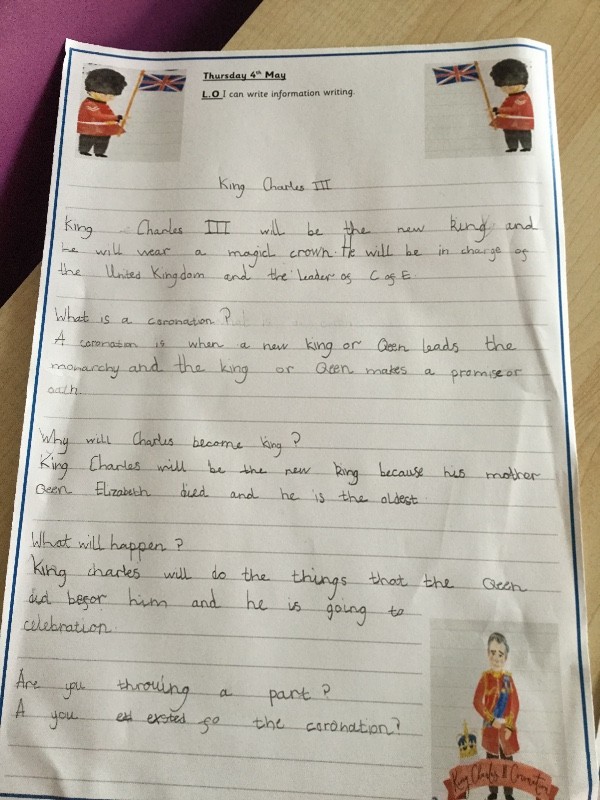 Thursday 4th May
L.O I can write information writing.
King Charles III
King Charles III will be the new king and
he will wear a magicl crown. He will be in charge of
the United Kingdom and the leader of C of E.
What is a coronation?
A coronation is when a new king or Qeen leads the
monarchy and the king or Qeen makes a promise or
oath.
Why will Charles become king?
King Charles will be the new king because his mother
Qeen Elizabeth died and he is the oldest
What will happen?
King charles will do the things that the Qeen
did befor him and he is going to
celebration.
Are you throwing a part?
A you exsted fo the coronation?
King Charles III Coronation